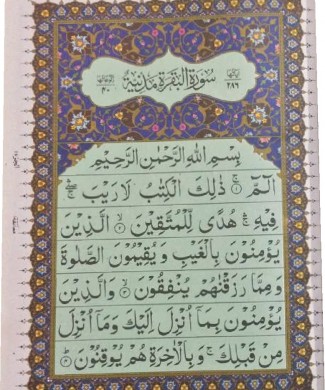 سُورَةُ الْبَقَرَةِ مَدَنِيَّةٌ
۲۸۶
۴۰
بِسْمِ اللهِ الرَّحْمٰنِ الرَّحِيْمِ
الٓمّٓ ۚ ۱ ذٰلِكَ الْكِتٰبُ لَا رَيْبَ ۛۚ
فِيْهِ ۛۚ هُدًى لِّلْمُتَّقِيْنَ ۙ ۲ الَّذِيْنَ
يُؤْمِنُوْنَ بِالْغَيْبِ وَ يُقِيْمُوْنَ الصَّلٰوةَ
وَ مِمَّا رَزَقْنٰهُمْ يُنْفِقُوْنَ ۙ ۳ وَالَّذِيْنَ
يُؤْمِنُوْنَ بِمَآ اُنْزِلَ اِلَيْكَ وَمَآ اُنْزِلَ
مِنْ قَبْلِكَ ۚ وَ بِالْاٰخِرَةِ هُمْ يُوْقِنُوْنَ ؕ ۴